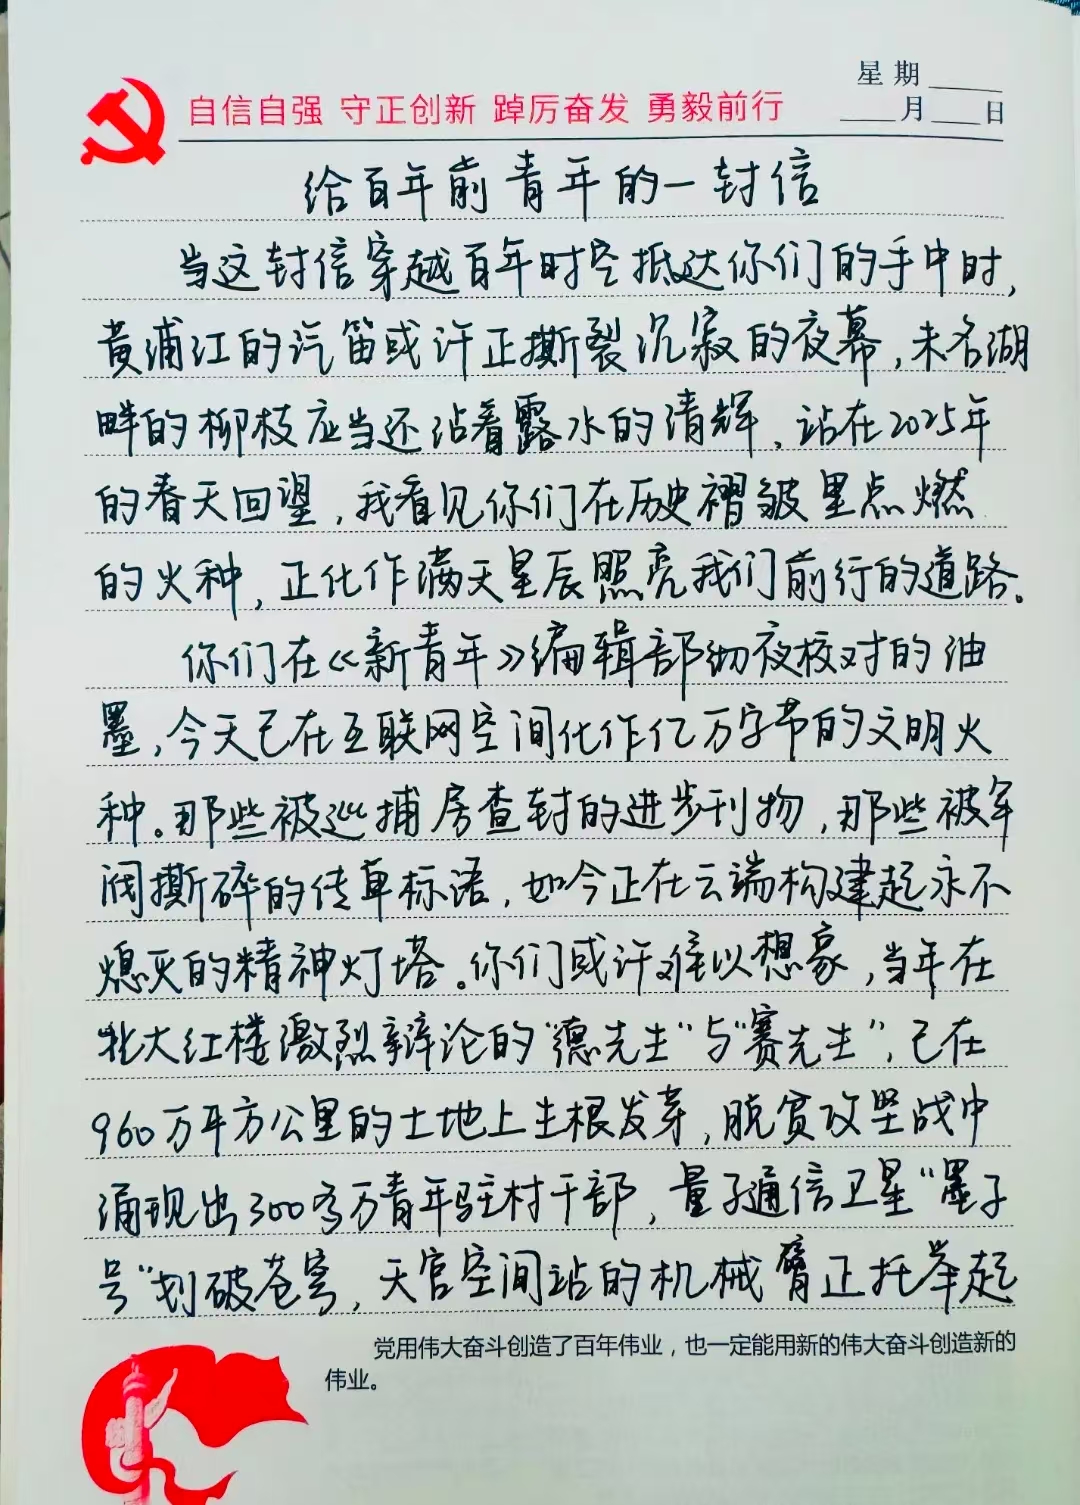 星期
自信自强 守正创新 踔厉奋发 勇毅前行
月 日
给百年前青年的一封信
当这封信穿越百年时空抵达你们的手中时,
黄浦江的汽笛或许正撕裂沉寂的夜幕,未名湖
畔的柳枝应当还沾着露水的清辉。站在2025年
的春天回望,我看见你们在历史褶皱里点燃
的火种,正化作满天星辰照亮我们前行的道路。
你们在《新青年》编辑部彻夜校对的油
墨,今天已在互联网空间化作亿万字节的文明火
种。那些被巡捕房查封的进步刊物,那些被军
阀撕碎的传单标语,如今正在云端构建起永不
熄灭的精神灯塔。你们或许难以想象,当年在
北大红楼激烈辩论的“德先生”与“赛先生”,已在
960万平方公里的土地上生根发芽,脱贫攻坚战中
涌现出300多万青年驻村干部,量子通信卫星“墨子
号”划破苍穹,天宫空间站的机械臂正托举起
党用伟大奋斗创造了百年伟业,也一定能用新的伟大奋斗创造新的
伟业。